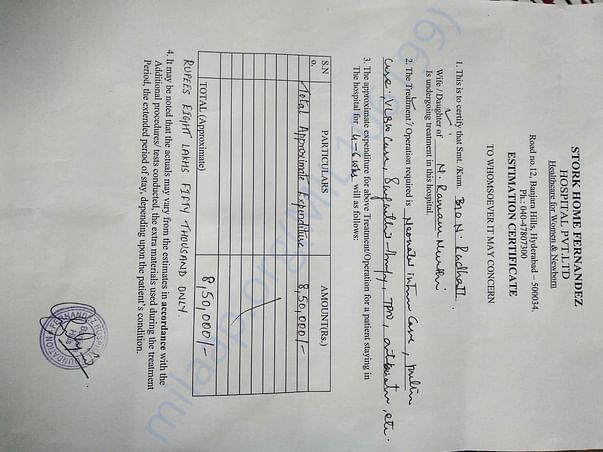 STORK HOME FERNANDEZ
HOSPITAL PVT.LTD
Healthcare for Women & Newborn
Road no.12, Banjara Hills, Hyderabad – 500034.
Ph.: 040-47807300
ESTIMATION CERTIFICATE
TO WHOMSOEVER IT MAY CONCERN
1. This is to certify that Smt. /Kum. B/o N.
Wife / Daughter of N.
Is undergoing treatment in this hospital.
2. The Treatment / Operation required is Neonatal Care,
Care, Care, TPN, etc.
3. The approximate expenditure for above Treatment/Operation for a patient staying in
The hospital for 4-6 wks will as follows:
S.N
o.
PARTICULARS
AMOUNT(Rs.)
Total Approximate Expenditure
8,50,000/-
TOTAL (Approximate)
8,50,000/-
RUPEES EIGHT LAKHS FIFTY THOUSAND ONLY.
4. It may be noted that the actuals may vary from the estimates in accordance with the
Additional procedures/ tests conducted, the extra materials used during the treatment
Period, the extended period of stay, depending upon the patient's condition.
FOUNDATION FERNANDEZ HOSPITAL
milaap.org